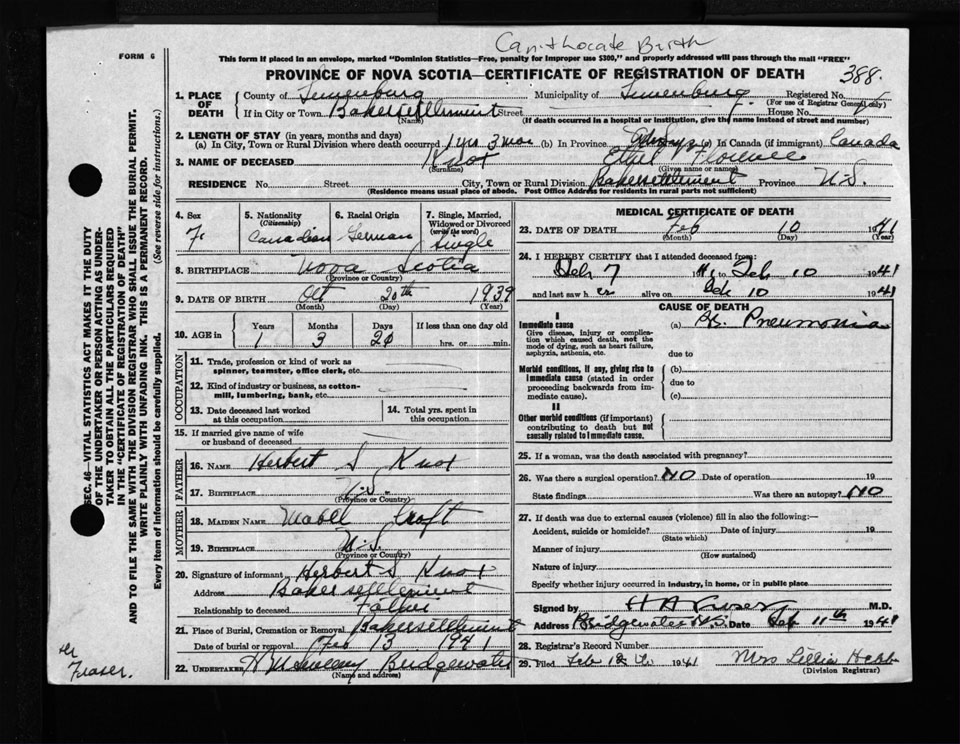 Can't locate Birth
FORM 6
This form if placed in an envelope, marked "Dominion Statistics—Free, penalty for improper use $300," and properly addressed will pass through the mail "FREE"
PROVINCE OF NOVA SCOTIA—CERTIFICATE OF REGISTRATION OF DEATH
388.
1. PLACE OF DEATH County of Lunenburg Municipality of Lunenburg Registered No.
(For use of Registrar General only)
If in City or Town Bakersettlement Street House No.
(Name) (If death occurred in a hospital or institution, give the name instead of street and number)
2. LENGTH OF STAY (in years, months and days)
(a) In City, Town or Rural Division where death occurred 1 yr 3 mos (b) In Province (c) In Canada (if immigrant) Canada
3. NAME OF DECEASED Knox Ethel Florence
(Surname) (Given name or names)
RESIDENCE No. Street City, Town or Rural Division Bakersettlement Province N.S.
(Residence means usual place of abode. Post Office Address for residents in rural parts not sufficient)
4. Sex
F.
5. Nationality
(Citizenship)
Canadian
6. Racial Origin
German
7. Single, Married,
Widowed or Divorced
(write the word)
Single
8. BIRTHPLACE Nova Scotia
(Province or Country)
9. DATE OF BIRTH Oct 20th 1939
(Month) (Day) (Year)
10. AGE in Years Months Days If less than one day old
1 3 20 hrs. or min.
OCCUPATION
11. Trade, profession or kind of work as
spinner, teamster, office clerk, etc.
12. Kind of industry or business, as cotton-
mill, lumbering, bank, etc.
13. Date deceased last worked
at this occupation
14. Total yrs. spent in
this occupation
15. If married give name of wife
or husband of deceased
FATHER
16. NAME Herbert S Knox
17. BIRTHPLACE N.S.
(Province or Country)
MOTHER
18. MAIDEN NAME Mabel Croft
19. BIRTHPLACE N.S.
(Province or Country)
20. Signature of informant Herbert S Knox
Address Baker settlement
Relationship to deceased Father
21. Place of Burial, Cremation or Removal Bakersettlement
Date of burial or removal Feb 13 1941
22. UNDERTAKER Bridgewater
(Name and address)
MEDICAL CERTIFICATE OF DEATH
23. DATE OF DEATH Feb 10 1941
(Month) (Day) (Year)
24. I HEREBY CERTIFY that I attended deceased from:
Feb 7 1941 to Feb 10 1941
and last saw h er alive on Feb 10 1941
CAUSE OF DEATH
I
Immediate cause
Give disease, injury or complica-
tion which caused death, not the
mode of dying, such as heart failure,
asphyxia, asthenia, etc.
(a) Br. Pneumonia
due to
Morbid conditions, if any, giving rise to
immediate cause (stated in order
proceeding backwards from im-
mediate cause).
(b)
due to
(c)
II
Other morbid conditions (if important)
contributing to death but not
causally related to immediate cause.
25. If a woman, was the death associated with pregnancy?
26. Was there a surgical operation? NO Date of operation 19
State findings Was there an autopsy? NO
27. If death was due to external causes (violence) fill in also the following:—
Accident, suicide or homicide? Date of injury 19
(State which)
Manner of injury
(How sustained)
Nature of injury
Specify whether injury occurred in industry, in home, or in public place
Signed by M.D.
Address Bridgewater N.S. Date Feb 11th 1941
28. Registrar's Record Number
29. Filed Feb 1941 Mrs Lillia Hebb
(Division Registrar)
SEC. 46—VITAL STATISTICS ACT MAKES IT THE DUTY
OF THE UNDERTAKER OR PERSON ACTING AS UNDER-
TAKER TO OBTAIN ALL THE PARTICULARS REQUIRED
IN THE "CERTIFICATE OF REGISTRATION OF DEATH"
AND TO FILE THE SAME WITH THE DIVISION REGISTRAR WHO SHALL ISSUE THE BURIAL PERMIT.
WRITE PLAINLY WITH UNFADING INK. THIS IS A PERMANENT RECORD.
Every item of information should be carefully supplied. (See reverse side for instructions.)
Fraser.